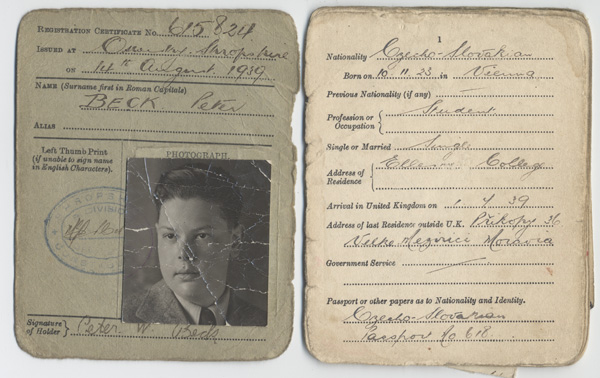 REGISTRATION CERTIFICATE No. 615824
ISSUED AT Shropshire
ON 14th August 1939
NAME (Surname first in Roman Capitals)
BECK Peter
ALIAS
Left Thumb Print
(if unable to sign name
in English Characters).
PHOTOGRAPH.
DIVISION
Signature
of Holder } Peter W. Beck
1
Nationality Czecho-Slovakian
Born on 10.11.23 in Vienna
Previous Nationality (if any)
Profession or
Occupation } Student
Single or Married Single
Address of
Residence } College
Arrival in United Kingdom on 1 7 39
Address of last Residence outside U.K. Prikopy 36
Government Service
Passport or other papers as to Nationality and Identity.
Czecho-Slovakian
Passport No 618